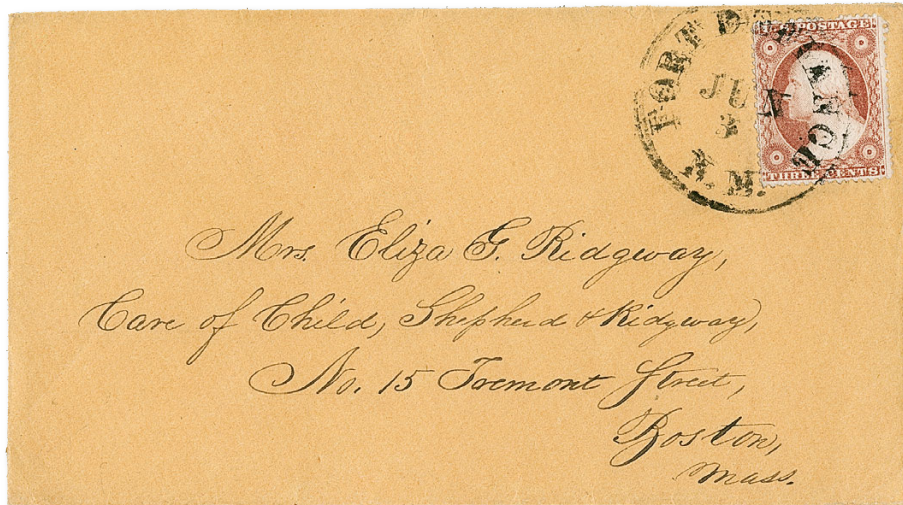 FORT DEFIANCE
JUN
3
N.M.
U.S. POSTAGE
THREE CENTS
Mrs. Eliza G. Ridgway,
Care of Child, Shepherd & Ridgway,
No. 15 Tremont Street,
Boston,
Mass.